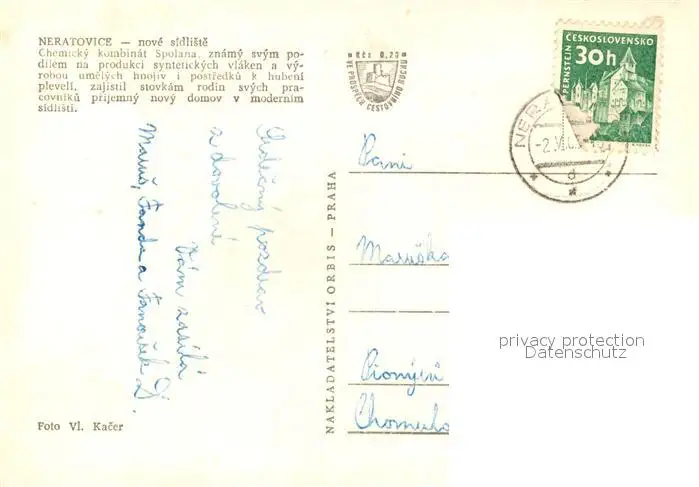 NERATOVICE — nové sídliště
Chemický kombinát Spolana, známý svým po-
dílem na produkci syntetických vláken a vý-
robou umělých hnojiv i postředků k hubení
plevelí, zajistil stovkám rodin svých pra-
covníků příjemný nový domov v moderním
sídlišti.
Kčs 0,20
VE PROSPĚCH CESTOVNÍHO RUCHU
ČESKOSLOVENSKO
30h
PERNŠTEJN
NERA
-2.V
d
Srdečný pozdrav
z dovolené
Vám zasílá
Maruš, Fanda a Fanoušek
NAKLADATELSTVÍ ORBIS — PRAHA
Paní
Maruška
Pionýrů
Chomuto
privacy protection
Datenschutz
Foto Vl. Kačer